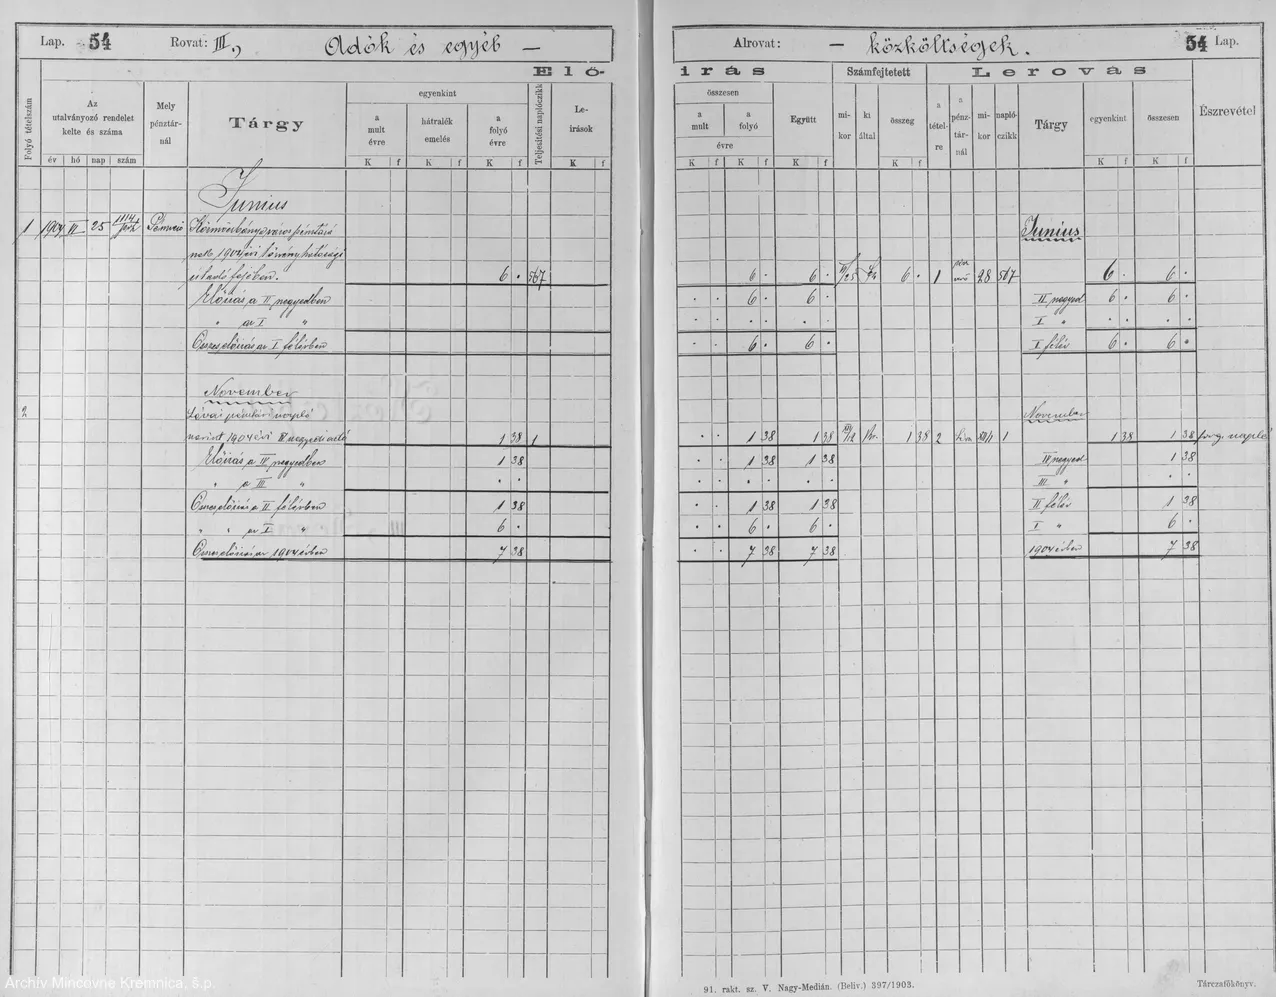 Lap. 54 Rovat: III., Adók és egyéb —
Elő-
Folyó tételszám
Az utalványozó rendelet kelte és száma
év hó nap szám
Mely pénztár-nál
Tárgy
egyenkint
a mult évre
hátralék emelés
a folyó évre
Teljesítési naplóczikk
Le-írások
K f K f K f K f
Junius
1 1904 VI 25 1114
Körmöczbánya város
nak 1904 évi törvényhatósági
6 . 567
Előirás a II negyedben
" az I "
Összes előirás az I félévben
November
2
Lévai pénztári napló
szerint 1904 évi IV negyedi adó 1 38 1
Előirás a IV negyedben 1 38
" a III " . .
Összes előirás a II félévben 1 38
" " az I " 6 .
Összes előirás az 1904 évben 7 38
Alrovat: — közköltségek. 54 Lap.
irás
Számfejtetett
Lerovás
Észrevétel
összesen
a mult a folyó
évre
Együtt
mi-kor
ki által
összeg
a tétel-re
a pénz-tár-nál
mi-kor
napló-czikk
Tárgy
egyenkint
összesen
K f K f K f K f K f K f
Junius
6 . 6 . 6 . 1 28 567 6 . 6 .
. . 6 . 6 . II negyed 6 . 6 .
. . . . . . I " . . . .
. . 6 . 6 . I félév 6 . 6 .
November
. . 1 38 1 38 1 38 2 1 1 38 1 38
. . 1 38 1 38 IV negyed 1 38
. . . . . . III " . .
. . 1 38 1 38 II félév 1 38
. . 6 . 6 . I " 6 .
. . 7 38 7 38 1904 évben 7 38
91. rakt. sz. V. Nagy-Medián. (Beliv.) 397/1903.
Tárczafőkönyv.
Archiv Mincovne Kremnica, š.p.